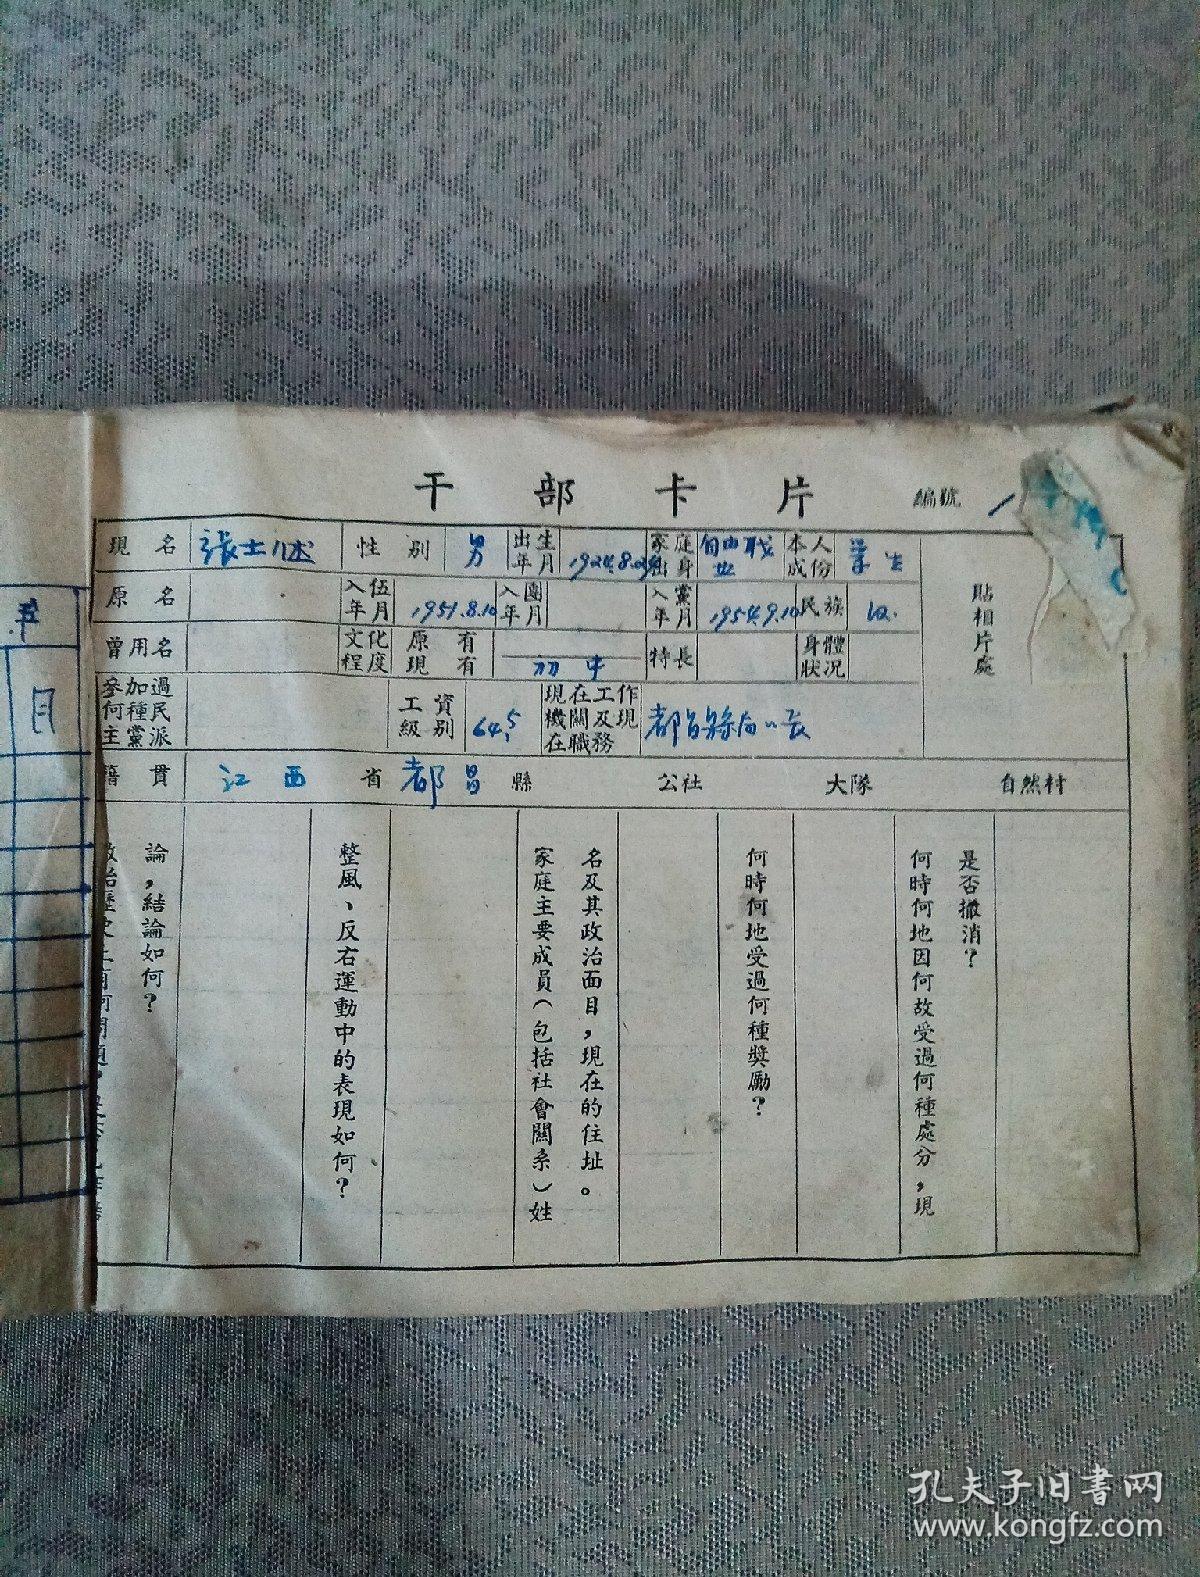 干部卡片
編號
現名 張士 性別 男 出生年月 1924.8. 家庭出身 自由職业 本人成份 学生
貼相片處
原名 入伍年月 1951.8.10 入團年月 入黨年月 1954.9.10 民族 汉
曾用名 文化程度 原有 現有 初中 特長 身體狀况
參加過何種民主黨派 工資級別 64.5 現在工作機關及現在職務 都昌縣
籍貫 江西 省 都昌 縣 公社 大隊 自然村
是否撤消？
何時何地因何故受過何種處分，現
何時何地受過何種獎勵？
名及其政治面目，現在的住址。
家庭主要成員（包括社會關系）姓
整風、反右運動中的表現如何？
論，結論如何？
目
孔夫子旧书网
www.kongfz.com